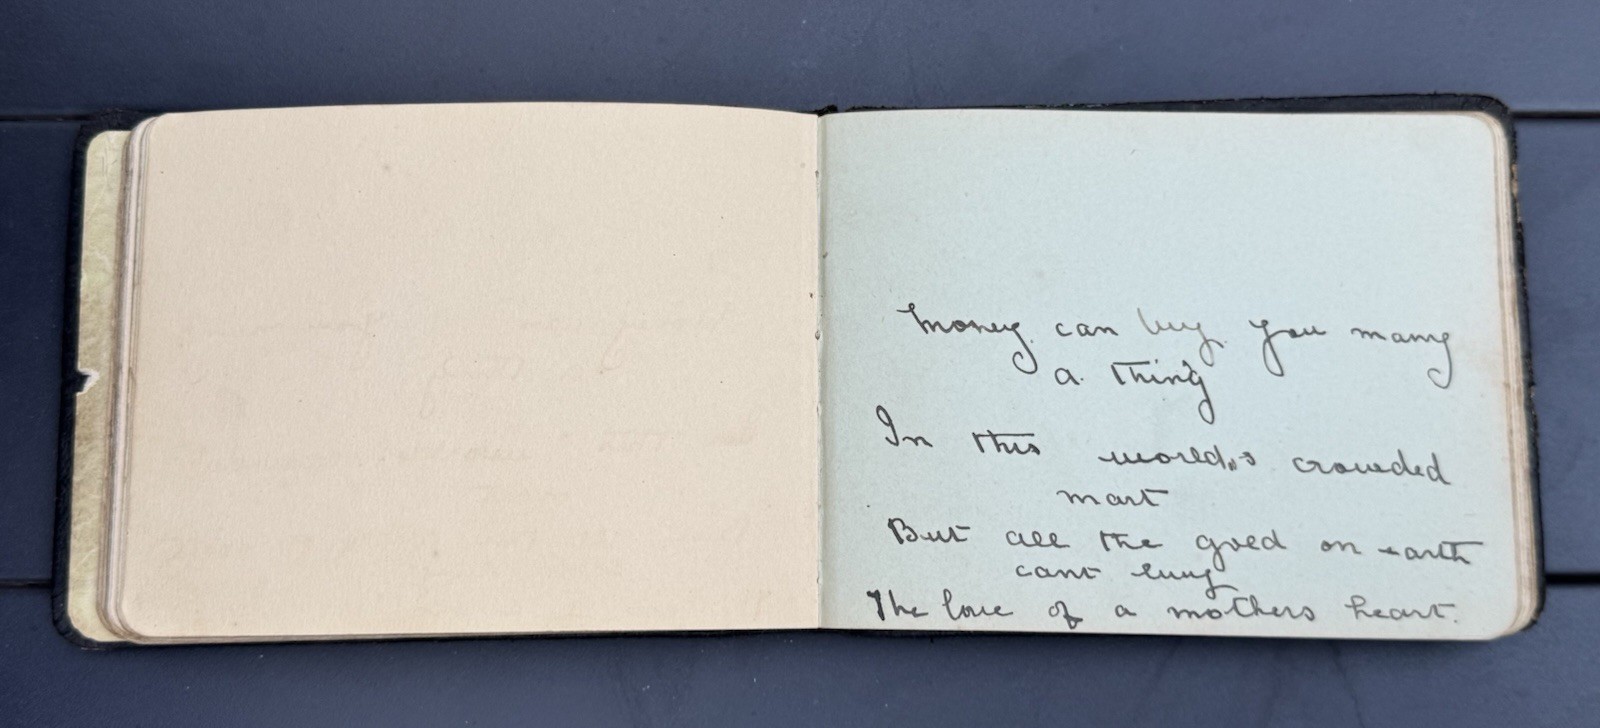 Money can buy you many
a thing
In this world,s crowded
mart
But all the gold on earth
cant buy
The love of a mothers heart.